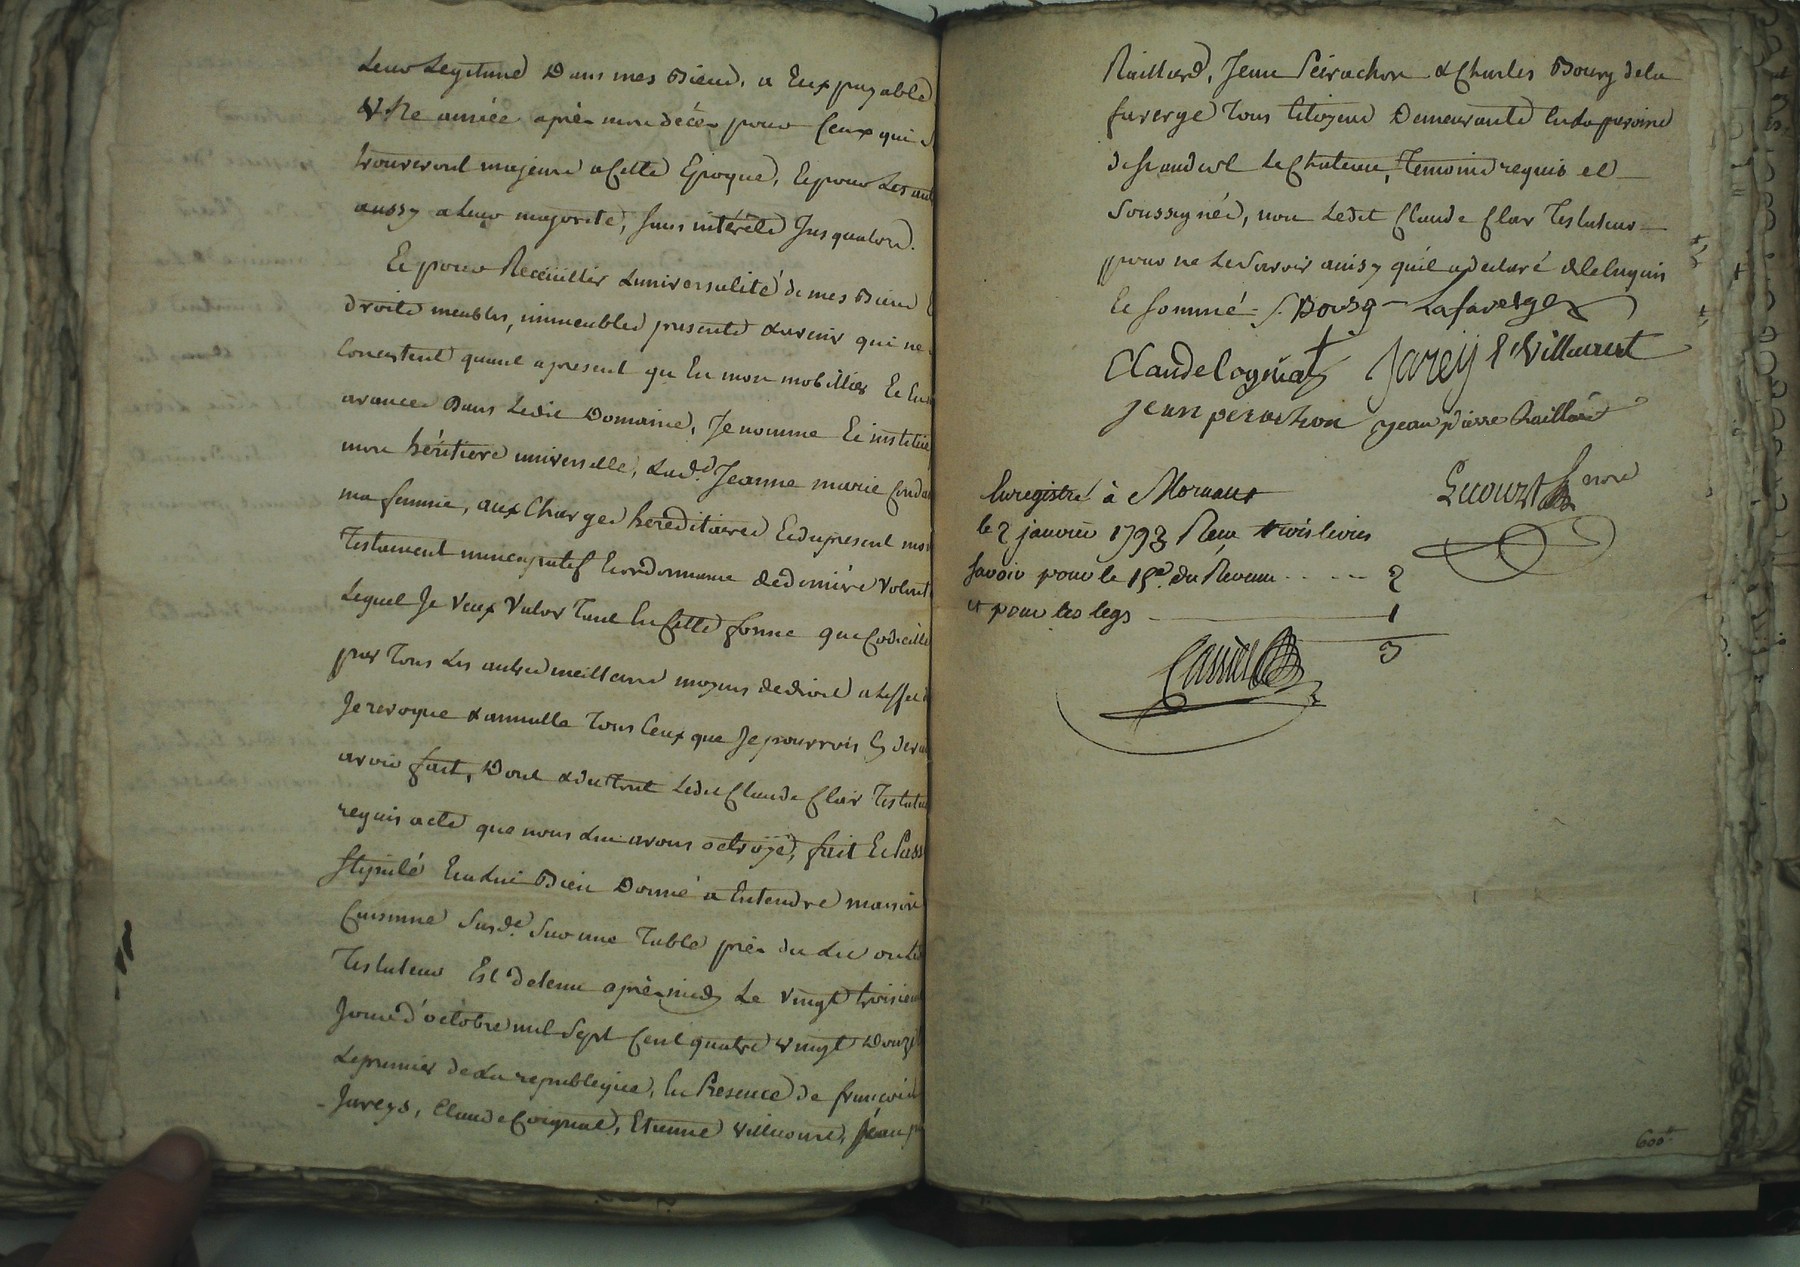 Leur Legitime Dans mes Biens, a Eux payable
Une année après mon décès pour Ceux qui
trouveront majeurs a Cette Epoque, Et pour Les
aussy a Leur majorité, sans intérêts Jusqualors.
Et pour Recëuillir Luniversalité de mes Biens
droits meubles, immeubles presents & avenir qui ne
Concistent quant apresent qu En mon mobillier Et
avances Dans Ledit Domaine, Je nomme Et institue
mon héritiere universelle, Lad.e Jeanne marie
ma femme, aux Charges héréditaires Et du present mon
Testament nuncupatif Et ordonnance de derniere Volont
Lequel Je Veux Valoir Tant En Cette forme que Codicille
par Tous Les autres meilleurs moyens de droit a Leffet
Je revoque & annulle Tous Ceux que Je pourrois Cy dev
avoir fait, Dont & du Tout Ledit Claude Clair Testateur
requis acte que nous Lui avons octroÿé, fait Et Pass
Stipulé Et a Lui Bien Donné a Entendre maison
Cuisinne Susd.e Sur une Table près du Lit
Testateur Est detenu après midy Le Vingt troisieme
Jour d'octobre mil Sept Cent quatre Vingt Douze
Le premier de La republique, En Présence de françois
Jareys, Claude Coignat, Etienne Villecourt, Jean
Raillard, Jean Peirachon & Charles Bourg dela
faverge Tous Citoyens Demeurants En La paroisse
de St andéol Le Chateau, Temoins requis et
Soussignés, non Ledit Claude Clair Testateur
pour ne Le Savoir ainsy quil a declaré de le enquis
le Sommé. Bourg Lafaverge
Claude Cogniat Jarey E Villecourt
jean perachon jean pierre Raillard
Enregistré à Mornant
le 2 janvier 1793 Recu trois livres
Savoir pour le 15e. du Revenu ..... 2
et pour les legs 1
3
Lecourt nore
600